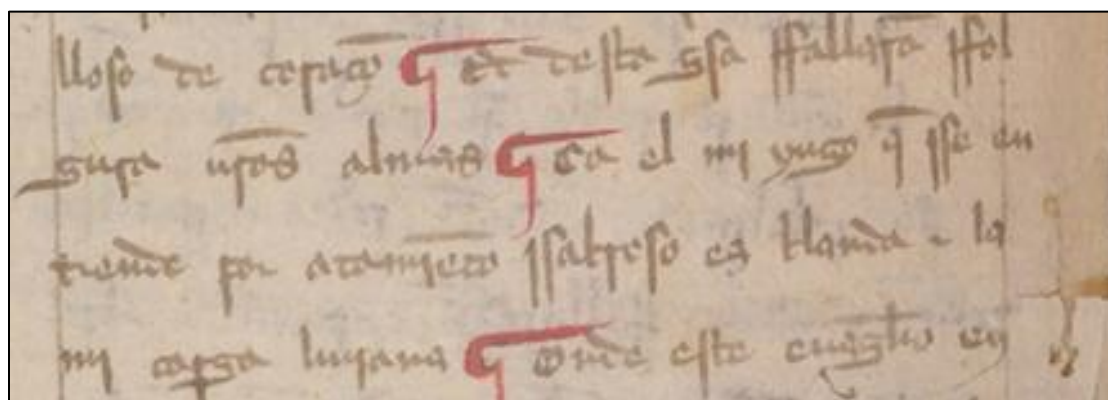 lloso de coraçõ ¶ Et desta g̃sa ffallarã ffol
gura vr̃as almas ¶ Ca el mi yugo q̃ sse en
tiende por atamiẽto ssabroso es blanda τ la
mi carga liuiana ¶ Onde este euãg̃lio en